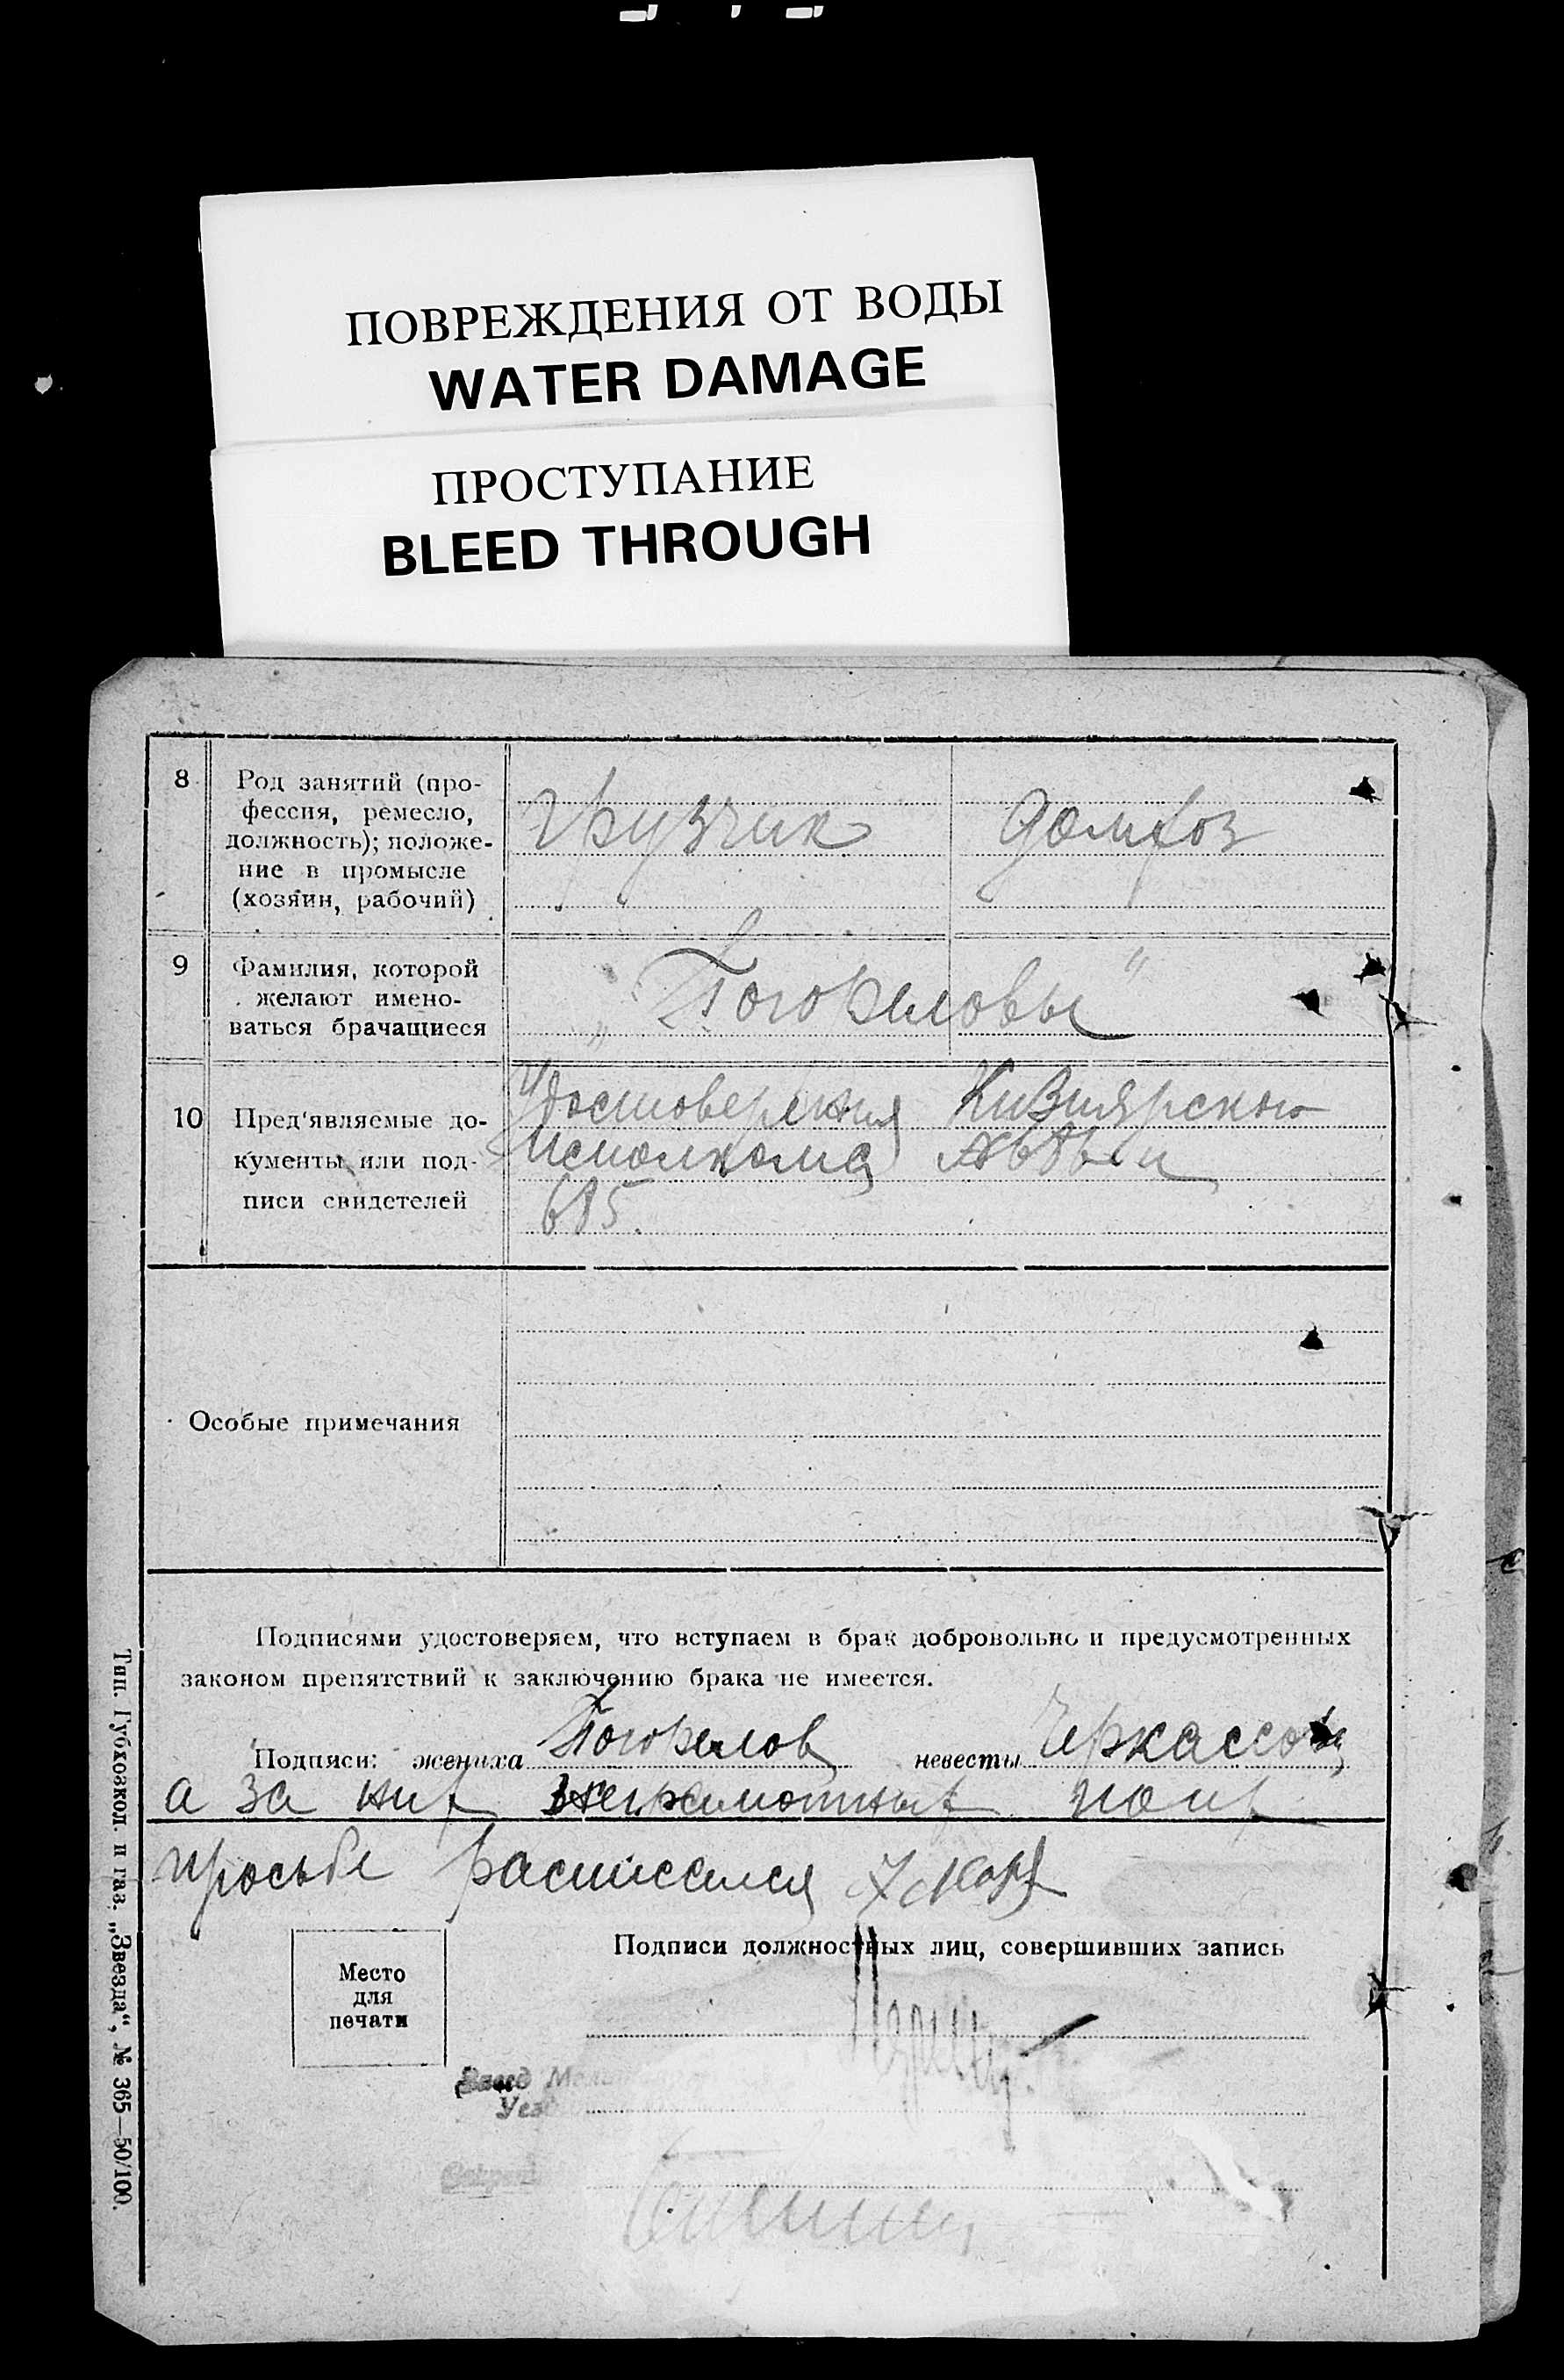 ПОВРЕЖДЕНИЯ ОТ ВОДЫ
WATER DAMAGE
ПРОСТУПАНИЕ
BLEED THROUGH
8
Род занятий (про-
фессия, ремесло,
должность); положе-
ние в промысле
(хозяин, рабочий)
Грузчик
домхоз
9
Фамилия, которой
желают имено-
ваться брачащиеся
„Погореловы"
10
Пред'являемые до-
кументы или под-
писи свидетелей
Удостоверения Кизиярского
Исполкома
685.
Особые примечания
Подписями удостоверяем, что вступаем в брак добровольно и предусмотренных
законом препятствий к заключению брака не имеется.
Подписи: жениха Погорелов невесты Черкассова
а за них неграмотных по их
просьбе расписался
Место
для
печати
Подписи должностных лиц, совершивших запись
Тип. Губкозкол. п газ. „Звезда", № 365—50/100.